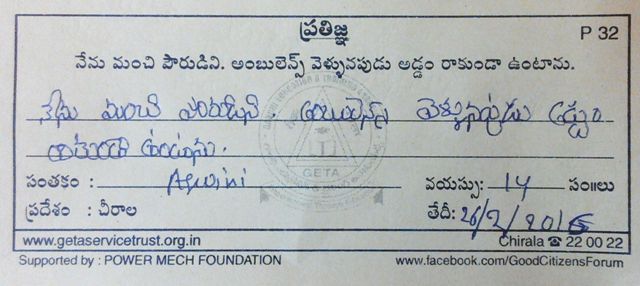 ప్రతిజ్ఞ P 32
నేను మంచి పౌరుడిని. అంబులెన్స్ వెళ్ళునపుడు అడ్డం రాకుండా ఉంటాను.
నేను మంచి అంబులెన్స్ వెళ్ళునప్పుడు అడ్డం
ఉంటాను.
సంతకం : Aswini వయస్సు: 14 సం॥లు
ప్రదేశం : చీరాల తేదీ: 26/2/2016
www.getaservicetrust.org.in Chirala ☎ 22 00 22
Supported by : POWER MECH FOUNDATION www.facebook.com/GoodCitizensForum
GETA